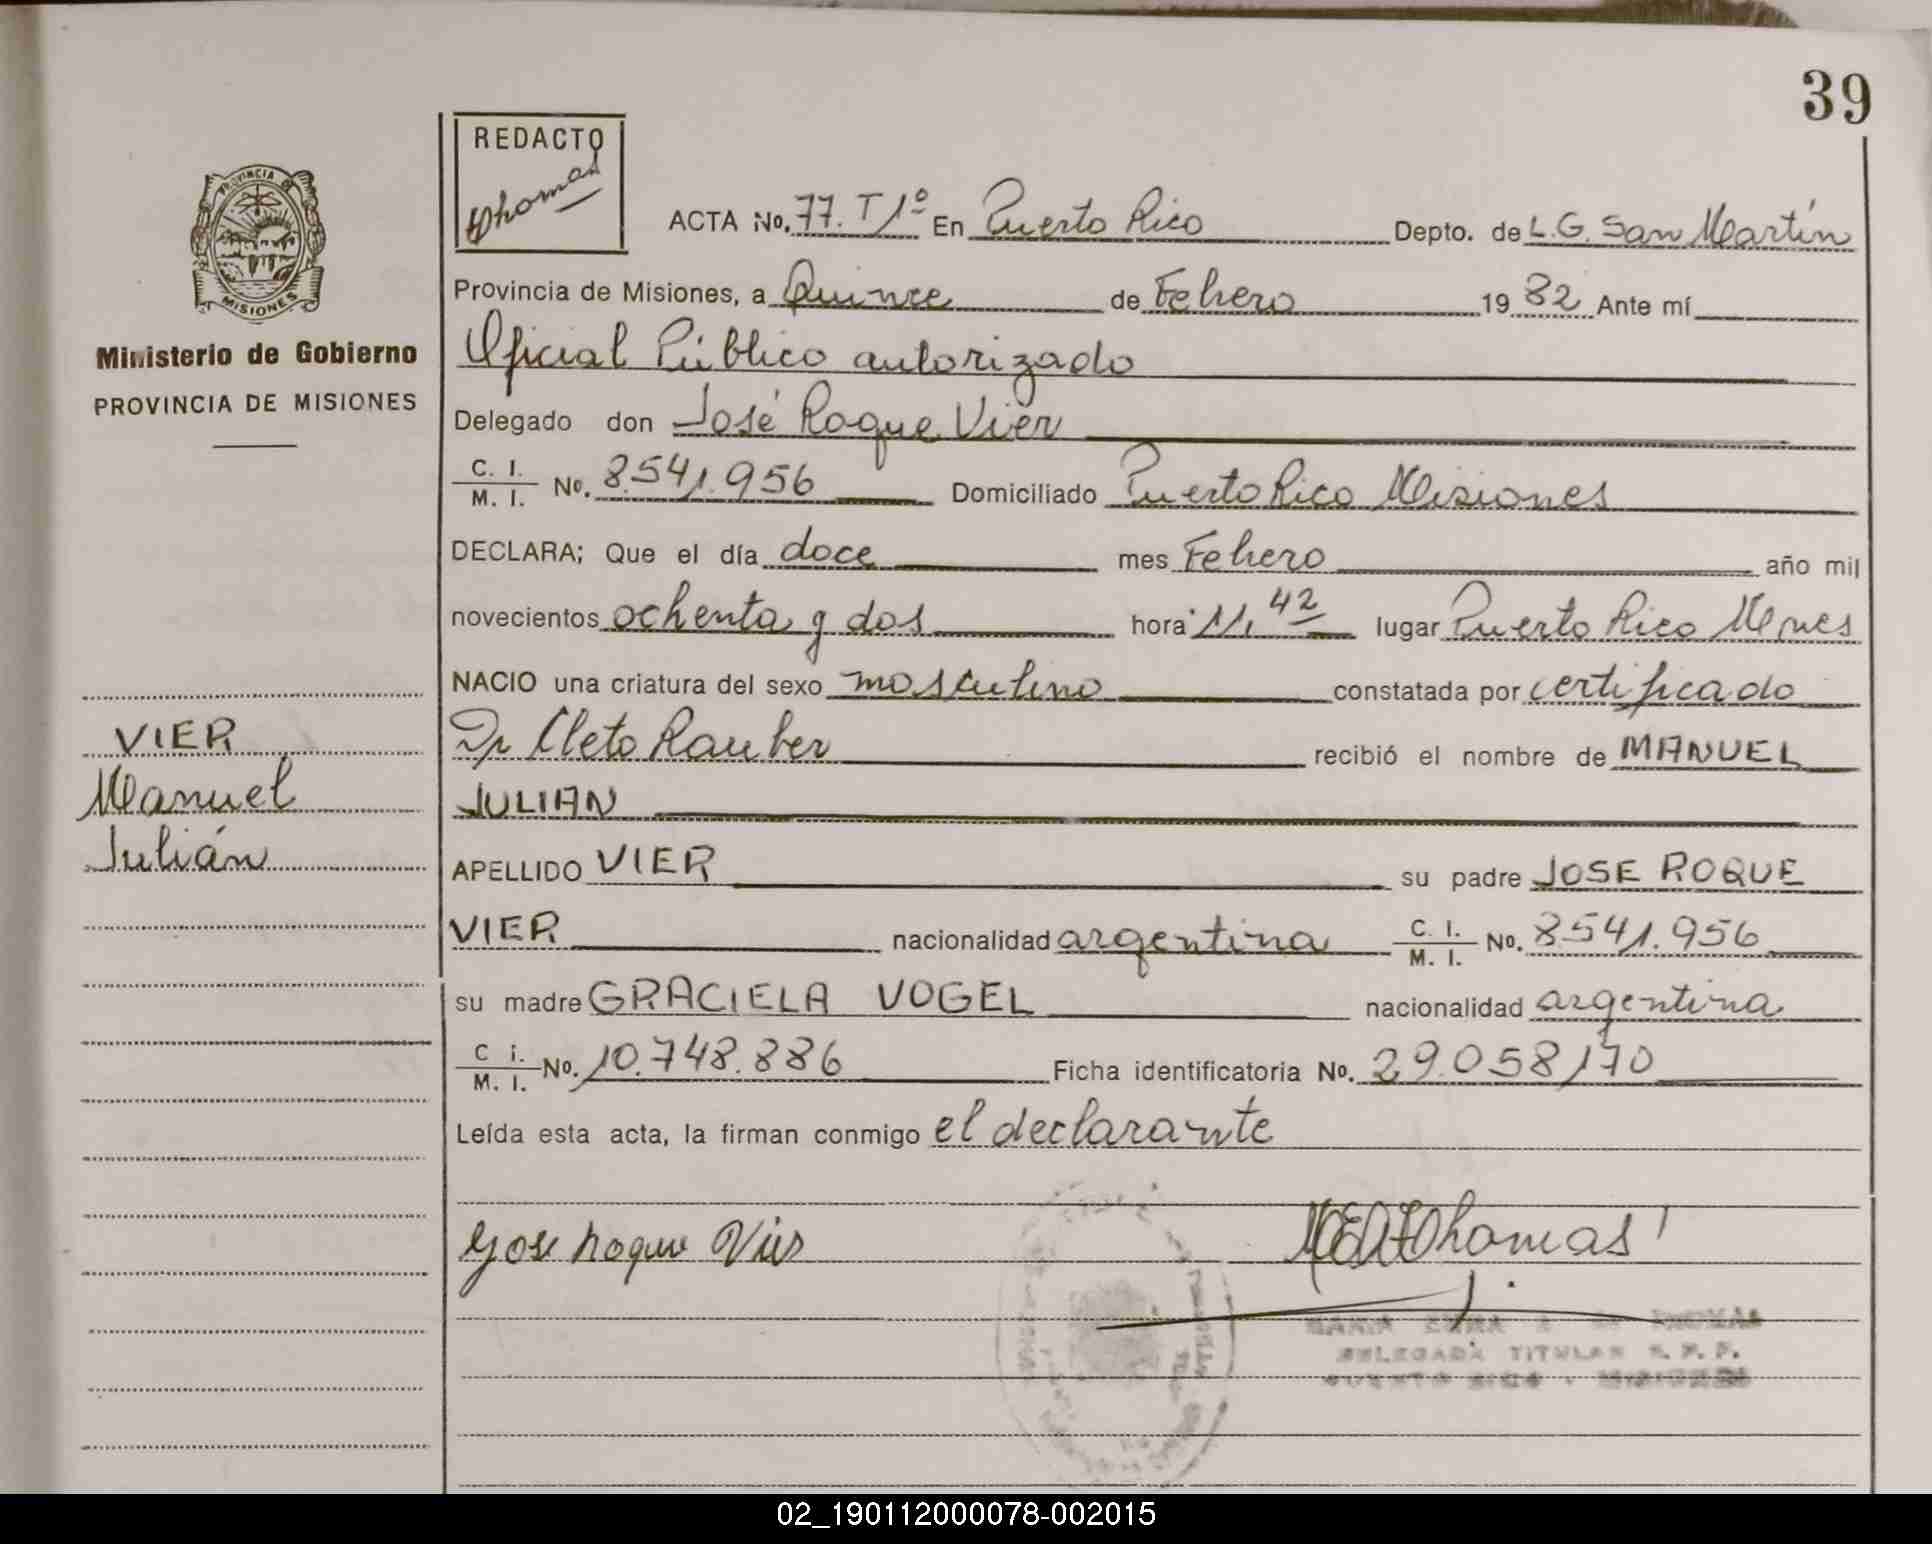 39
REDACTO
Thomas
PROVINCIA DE
MISIONES
ACTA No. 77. T 1º En Puerto Rico Depto. de L.G. San Martín
Provincia de Misiones, a Quince de Febrero 19 82 Ante mí
Ministerio de Gobierno
PROVINCIA DE MISIONES
Oficial Público autorizado
Delegado don José Roque Vier
C. I. M. I. No. 8.541.956 Domiciliado Puerto Rico Misiones
DECLARA; Que el día doce mes Febrero año mil
novecientos ochenta y dos hora 11,42 lugar Puerto Rico Mnes
NACIO una criatura del sexo masculino constatada por certificado
VIER
Manuel
Julián
Dr Cleto Rauber recibió el nombre de MANUEL
JULIAN
APELLIDO VIER su padre JOSE ROQUE
VIER nacionalidad argentina C. I. M. I. No. 8541.956
su madre GRACIELA VOGEL nacionalidad argentina
C i. M. I. No. 10.748.886 Ficha identificatoria No. 29.058170
Leída esta acta, la firman conmigo el declarante
Jose Roque Vier
Thomas
DELEGADA TITULAR R. P. P.
PUERTO RICO - MISIONES
02_190112000078-002015